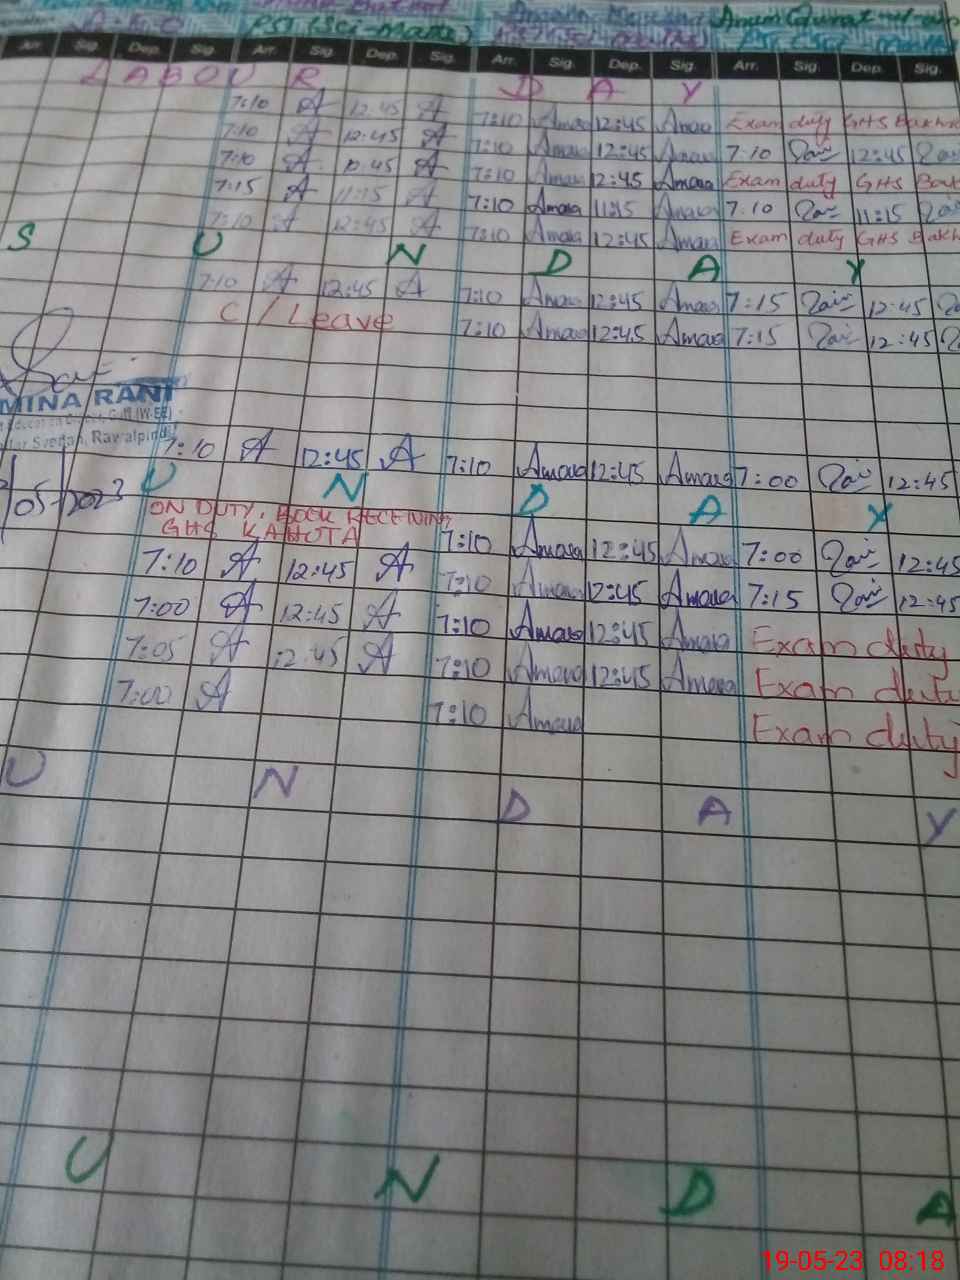 PST (Sci-Math)
Arr. Sig. Dep. Sig. Arr. Sig. Dep. Sig. Arr. Sig. Dep. Sig. Arr. Sig. Dep. Sig.
L A B O U R D A Y
7:10 A 12:45 A 7:10 Amara 12:45 Amara Exam duty GHS
7:10 A 12:45 A 7:10 Amara 12:45 Amara 7:10 12:45
7:10 A 12:45 A 7:10 Amara 12:45 Amara Exam duty GHS
7:15 A 11:15 A 7:10 Amara 11:15 Amara 7:10 11:15
7:10 A 12:45 A 7:10 Amara 12:45 Amara Exam duty GHS
S U N D A Y
7:10 A 12:45 A 7:10 Amara 12:45 Amara 7:15 12:45
C / Leave 7:10 Amara 12:45 Amara 7:15 12:45
MINA RANI
Rawalpindi
7:10 A 12:45 A 7:10 Amara 12:45 Amara 7:00 12:45
05/2023
U N D A Y
ON DUTY. BOOK RECEIVING
GHS KAHOTA
7:10 Amara 12:45 Amara 7:00 12:45
7:10 A 12:45 A 7:10 Amara 12:45 Amara 7:15 12:45
7:00 A 12:45 A 7:10 Amara 12:45 Amara Exam duty
7:05 A 12:45 A 7:10 Amara 12:45 Amara Exam duty
7:00 A 7:10 Amara Exam duty
U N D A Y
U N D A
19-05-23 08:18